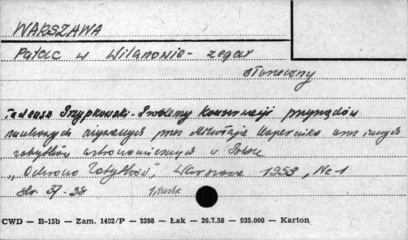 WARSZAWA
Pałac w Wilanowie - zegar
słoneczny
Tadeusz Przypkowski - Problemy konserwacji przyrządów
naukowych używanych przez Mikołaja Kopernika oraz innych
zabytków astronomicznych w Polsce
"Ochrona Zabytków", Warszawa 1953, Nr 1
str. 37-38
CWD — B-15b — Zam. 1402/P — 2398 — Łak — 26.7.58 — 935.000 — Karton